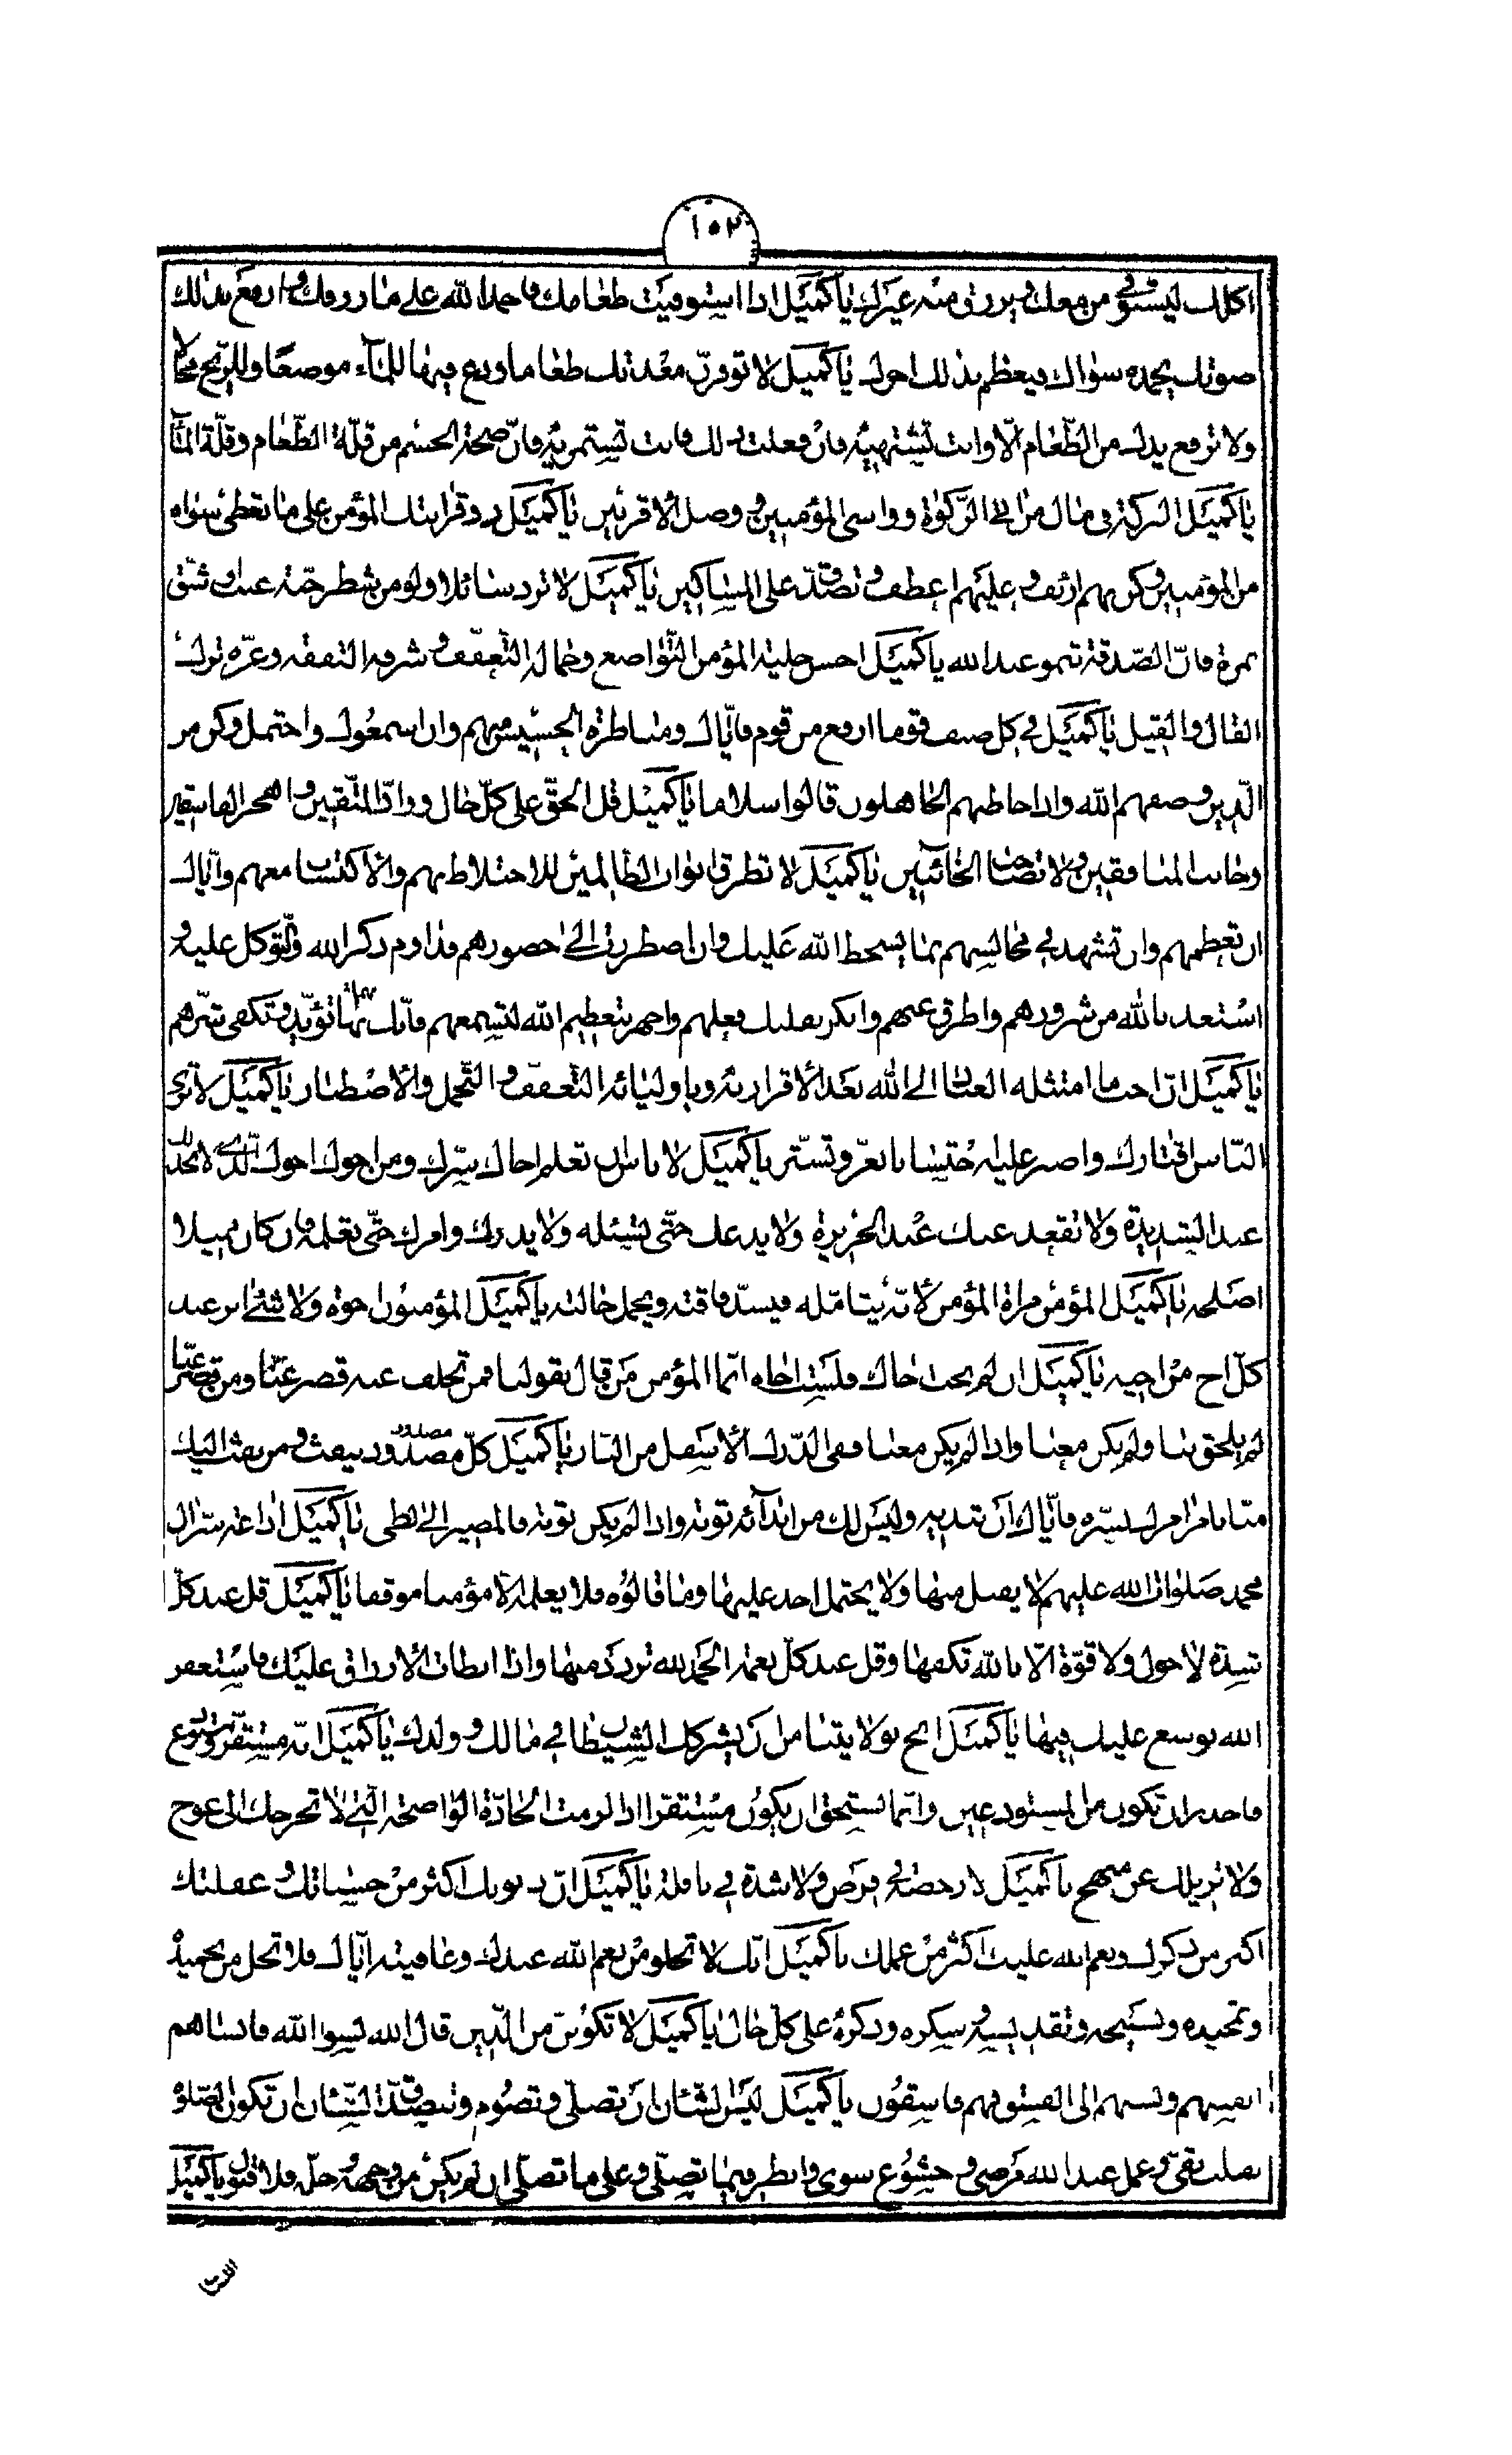 ١٥٢
اكلك ليستوفي من معك و يرزق منه غيرك يا كميل اذا استوفيت طعامك فاحمد الله على ما رزقك و ارفع بذلك
صوتك يحمده سواك فيعظم بذلك اجرك يا كميل لا توقرن معدتك طعاما و دع فيها للماء موضعا و للريح مجالا
ولا ترفع يدك من الطعام الا وانت تشتهيه فان فعلت ذلك فانت تستمرئه فان صحة الجسم من قلة الطعام وقلة الماء
يا كميل البركة في مال من اتى الزكوة و واسى المؤمنين و وصل الاقربين يا كميل زد قرابتك المؤمن على ما تعطى سواه
من المؤمنين وكن بهم ارئف و عليهم اعطف و تصدق على المساكين يا كميل لا ترد سائلا ولو من شطر حبة عنب او شق
تمرة فان الصدقة تنمو عند الله يا كميل احسن حلية المؤمن التواضع وجماله التعفف و شرفه التفقه وعزه ترك
القال والقيل يا كميل في كل صنف قوما ارفع من قوم فاياك ومناظرة الخسيس منهم وان اسمعوك واحتمل وكن من
الذين وصفهم الله واذا خاطبهم الجاهلون قالوا سلاما يا كميل قل الحق على كل حال و واد المتقين و اهجر الفاسقين
وجانب المنافقين ولا تصاحب الخائنين يا كميل لا تطرق ابواب الظالمين للاختلاط بهم والاكتساب معهم واياك
ان تعظمهم وان تشهد في مجالسهم بما يسخط الله عليك وان اضطررت الى حضورهم فداوم ذكر الله والتوكل عليه و
استعذ بالله من شرورهم واطرق عنهم وانكر بقلبك فعلهم واجهر بتعظيم الله لتسمعهم فانك بها تؤيد وتكفى شرهم
يا كميل ان احب ما امتثله العباد الى الله بعد الاقرار به وباوليائه التعفف و التحمل والاصطبار يا كميل لا ترى
الناس اقتارك واصبر عليه احتسابا بعز وتستر يا كميل لا باس ان تعلم اخاك سرك ومن اخوك اخوك الذي لا يخذلك
عند الشديدة ولا يقعد عنك عند الجريرة ولا يدعك حتى تسئله ولا يذرك وامرك حتى تعلمه فان كان مميلا
اصلحه يا كميل المؤمن مراة المؤمن لانه يتامله فيسد فاقته ويجمل حالته يا كميل المؤمنون اخوة ولا شئ اثر عند
كل اخ من اخيه يا كميل ان لم تحب اخاك فلست اخاه انما المؤمن من قال بقولنا فمن تخلف عنه قصر عنا ومن قصر عنا
لم يلحق بنا ولم يكن معنا واذا لم يكن معنا ففى الدرك الاسفل من النار يا كميل كل مصدور ينفث ومن نفث اليك
منا بامر امرك بستره فاياك ان تبديه وليس لك من ابدائه توبة واذا لم يكن توبة فالمصير الى لظى يا كميل اذاعة سر ال
محمد صلوات الله عليهم لا يقبل منها ولا يحتمل احد عليها وما قالوه فلا يعلمه الا مؤمنا موفقا يا كميل قل عند كل
شدة لا حول ولا قوة الا بالله تكفها وقل عند كل نعمة الحمد لله تزدد منها واذا ابطات الارزاق عليك فاستغفر
الله يوسع عليك فيها يا كميل انج بولايتنا من ان يشركك الشيطان في مالك و ولدك يا كميل انه مستقر ومستودع
فاحذر ان تكون من المستودعين وانما تستحق ان تكون مستقرا اذا لزمت الجادة الواضحة التي لا تخرجك الى عوج
ولا تزيلك عن منهج يا كميل لا رخصة في فرض ولا شدة في نافلة يا كميل ان ذنوبك اكثر من حسناتك و غفلتك
اكثر من ذكرك و نعم الله عليك اكثر من عملك يا كميل انك لا تخلو من نعم الله عندك وعافيته اياك فلا تخل من تحميده
وتمجيده و تسبيحه و تقديسه و شكره و ذكره على كل حال يا كميل لا تكونن من الذين قال الله نسوا الله فانساهم
انفسهم و نسبهم الى الفسق فهم فاسقون يا كميل ليس الشان ان تصلى وتصوم وتتصدق الشان ان تكون الصلوة
بقلب نقى وعمل عند الله مرضى و خشوع سوى وانظر فيما تصلى وعلى ما تصلى ان لم يكن من وجهه وحله فلا قبول يا كميل